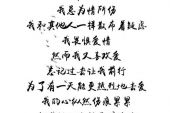 我总为情所伤
我和其他人一样散布着疑惑
我畏惧爱情
然而我又喜欢爱
忘记过去让我前行
为了有一天能更热烈地去爱
我的心纵然伤痕累累